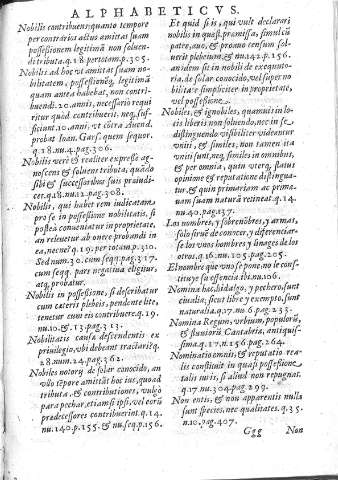 ALPHABETICVS.
Nobilis contribuens; quanto tempore
per contrarios actus amittat suam
possessionem legitimã non soluendi
tributa. q.18. per totom. p.305.
Nobilis ad hoc vt amittat suam nobilitatem,
possessionẽq; legitimã
quam antea habebat, non contribuendi.
20. annis, necessario requiritur
quòd contribuerit. neq; sufficiunt.
10. anni, vt cõtra Auend.
probat Ioan. Gars. quem sequor.
q.18. nu.4. pag.306.
Nobilis verè & realiter expresse agnoscens
& soluens tributa, quãdo
sibi & successoribus suis præiudicet.
q.18. nu.12. pag.308.
Nobilis, qui habet rem iudicatam,
pro se in possessione nobilitatis, si
postea conueniatur in proprietate,
an releuetur ab onere probandi in
ea, necne? q.19. per totum. p.310.
Sed num.30. cum seqq. pag.317.
cum seqq. pars negatiua eligitur,
atq; probatur.
Nobilis in possessione, si describatur
cum cæteris plebeis, pendente lite,
tenetur cum eis contribuere. q.19.
nu.10. & 13. pag.313.
Nobilitatis causa descendentis ex
priuilegio, vbi debeat tractari? q.
28. num.24. pag.362.
Nobiles notorij de solar conocido, an
vllo tẽpore amittãt hoc ius, quoad
tributa, & contributiones, vulgò
para pechar, etiam si ipsi, vel eorũ
prædecessores contribuerint. q.14.
nu.140. p.155. & nu.seq. p.156.
Et quid si is, qui vult declarari
nobilis in quæst. præmissa, simul cũ
patre, auo, & proauo tensum soluerit
plebeium, & nu.142. p.156.
an idem sit in nobili de executoria,
de solar conocido, vel super nobilitate
simpliciter in proprietate,
vel possessione.
Nobiles, & ignobiles, quamuis in locis
liberis non soluendo, nec in se
distinguendo visibiliter videantur
vniti, & similes, non tamen ita
vniti sunt, neq; similes in omnibus,
& per omnia, quin vterq; status
opinione & reputatione distinguatur,
& quin primariam ac primæuam
suam naturã retineat. q.14.
nu.40. pag.137.
Los nombres, y sobrenõbres, y armas,
sólo siruẽ de conocer, y diferenciarse
los vnos hombres y linages de los
otros. q.16. nu.105. p.205.
El nombre que vno se pone, no le constituye
su essencia ibi. nu.106.
Nomina hæc, hidalgo, y pechero, sunt
ciuilia; sicut libre y exempto, sunt
naturalia. q.17. nu.6. pag.233.
Nomina Regum, vrbium, populorũ,
& stantorũ Cantabria, antiquissima.
q.17. n.156. pag.264.
Nominatio omnis, & reputatio realis
constituit in quasi possessione
talis iuris, si aliud non repugnat.
q.17. nu.304. pag.299.
Non entis, & non apparentis nulla
sunt species, nec qualitates. q.35.
n.10. pag.407.
Ggg Non